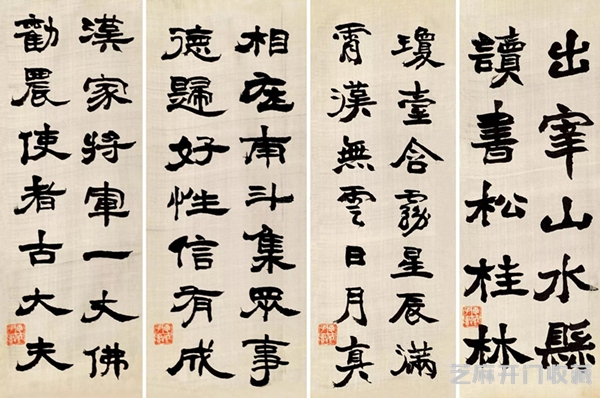 出宰山水縣
讀書松桂林
瓊臺含霧星辰滿
霄漢無雲日月真
相在南斗集眾事
德歸好性信有成
漢家將軍一丈佛
勸農使者古大夫
芝麻开门收藏